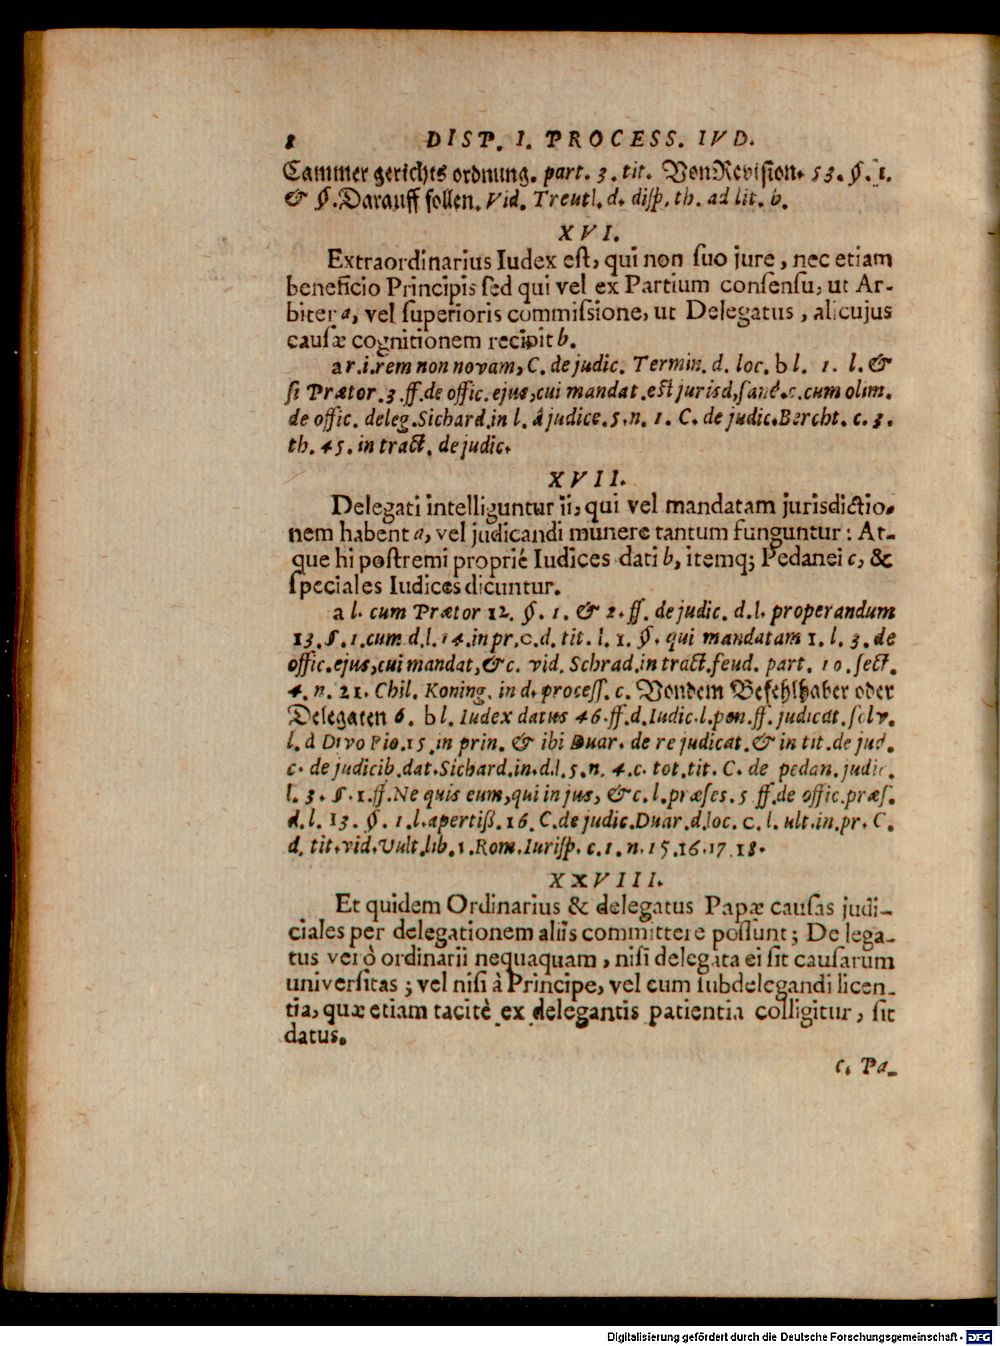 8 DISP. I. PROCESS. IVD.
Cammer gerichts ordnung. part. 3. tit. Von Revision. 53. §. 1.
& §. Darauff sollen. Vid. Treutl. d. disp. th. ad lit. b.
XVI.
Extraordinarius Iudex est, qui non suo jure, nec etiam
beneficio Principis sed qui vel ex Partium consensu, ut Ar-
biter a, vel superioris commissione, ut Delegatus, alicujus
causæ cognitionem recipit b.
a r. i. rem non novam, C. de judic. Termin. d. loc. b l. 1. l. &
si Prætor. 3. ff. de offic. ejus, cui mandat. est jurisd, sanè. c. cum olim.
de offic. deleg. Sichard. in l. à judice. 5. n. 1. C. de judic. Bercht. c. 3.
th. 45. in tract. de judic.
XVII.
Delegati intelliguntur ii, qui vel mandatam jurisdictio-
nem habent a, vel judicandi munere tantum funguntur: At-
que hi postremi proprié Iudices dati b, itemq; Pedanei c, &
speciales Iudices dicuntur.
a l. cum Prætor 12. §. 1. & 2. ff. de judic. d. l. properandum
13. §. 1. cum d. l. 14. in pr. c. d. tit. l. 1. §. qui mandatam 1. l. 3. de
offic. ejus, cui mandat, &c. vid. Schrad. in tract. feud. part. 10. sect.
4. n. 21. Chil. Koning. in d. process. c. Von dem Befehlhaber oder
Delegaten 6. b l. Iudex datus 46. ff. d. Iudic. l. pen. ff. judicat. solv.
l. à Divo Pio. 15. in prin. & ibi Duar. de re judicat. & in tit. de jud.
c. de judicib. dat. Sichard. in. d. l. 5. n. 4. c. tot. tit. C. de pedan. judic.
l. 3. §. 1. ff. Ne quis eum, qui in jus, &c. l. præses. 5 ff. de offic. præs.
d. l. 13. §. 1. l. apertiß. 16. C. de judic. Duar. d. loc. c. l. ult. in. pr. C.
d. tit. vid. Vult. lib. 1. Rom. Iurisp. c. 1. n. 15. 16. 17. 18.
XXVIII.
Et quidem Ordinarius & delegatus Papæ causas judi-
ciales per delegationem aliis committere possunt; Delega-
tus verò ordinarii nequaquam, nisi delegata ei sit causarum
universitas; vel nisi à Principe, vel cum subdelegandi licen-
tia, quæ etiam tacitè ex delegantis patientia colligitur, sit
datus.
c. Pa-
Digitalisierung gefördert durch die Deutsche Forschungsgemeinschaft - DFG